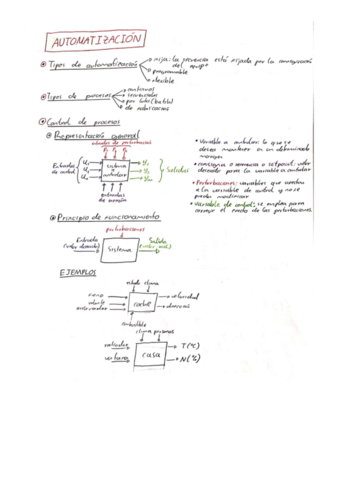 AUTOMATIZACIÓN
Tipos de automatización
fija: la secuencia está fijada por la configuración
del equipo
programable
flexible
Tipos de procesos
continuos
por lotes (batch)
de fabricación
Control de procesos
Representación general
entradas de perturbaciones
Entradas
de control
U₁
U₂
sistema
controlar
Y₁
Y₂
Salidas
entradas
• Variable a controlar: lo que se
desea mantener en un determinado
margen
• consigna o setpoint: valor
deseado para la variable a controlar
• Perturbaciones: variables que cambian
a la variable de control y no se
puede modificar
• Variable de control: se emplea para
corregir el efecto de las perturbaciones
Principio de funcionamiento
perturbaciones
Entrada
Sistema
Salida
EJEMPLOS
estado clima
freno
volante
acelerador
coche
velocidad
dirección
combustible
clima personas
radiador
ventana
casa
T (ºC)
N (%)